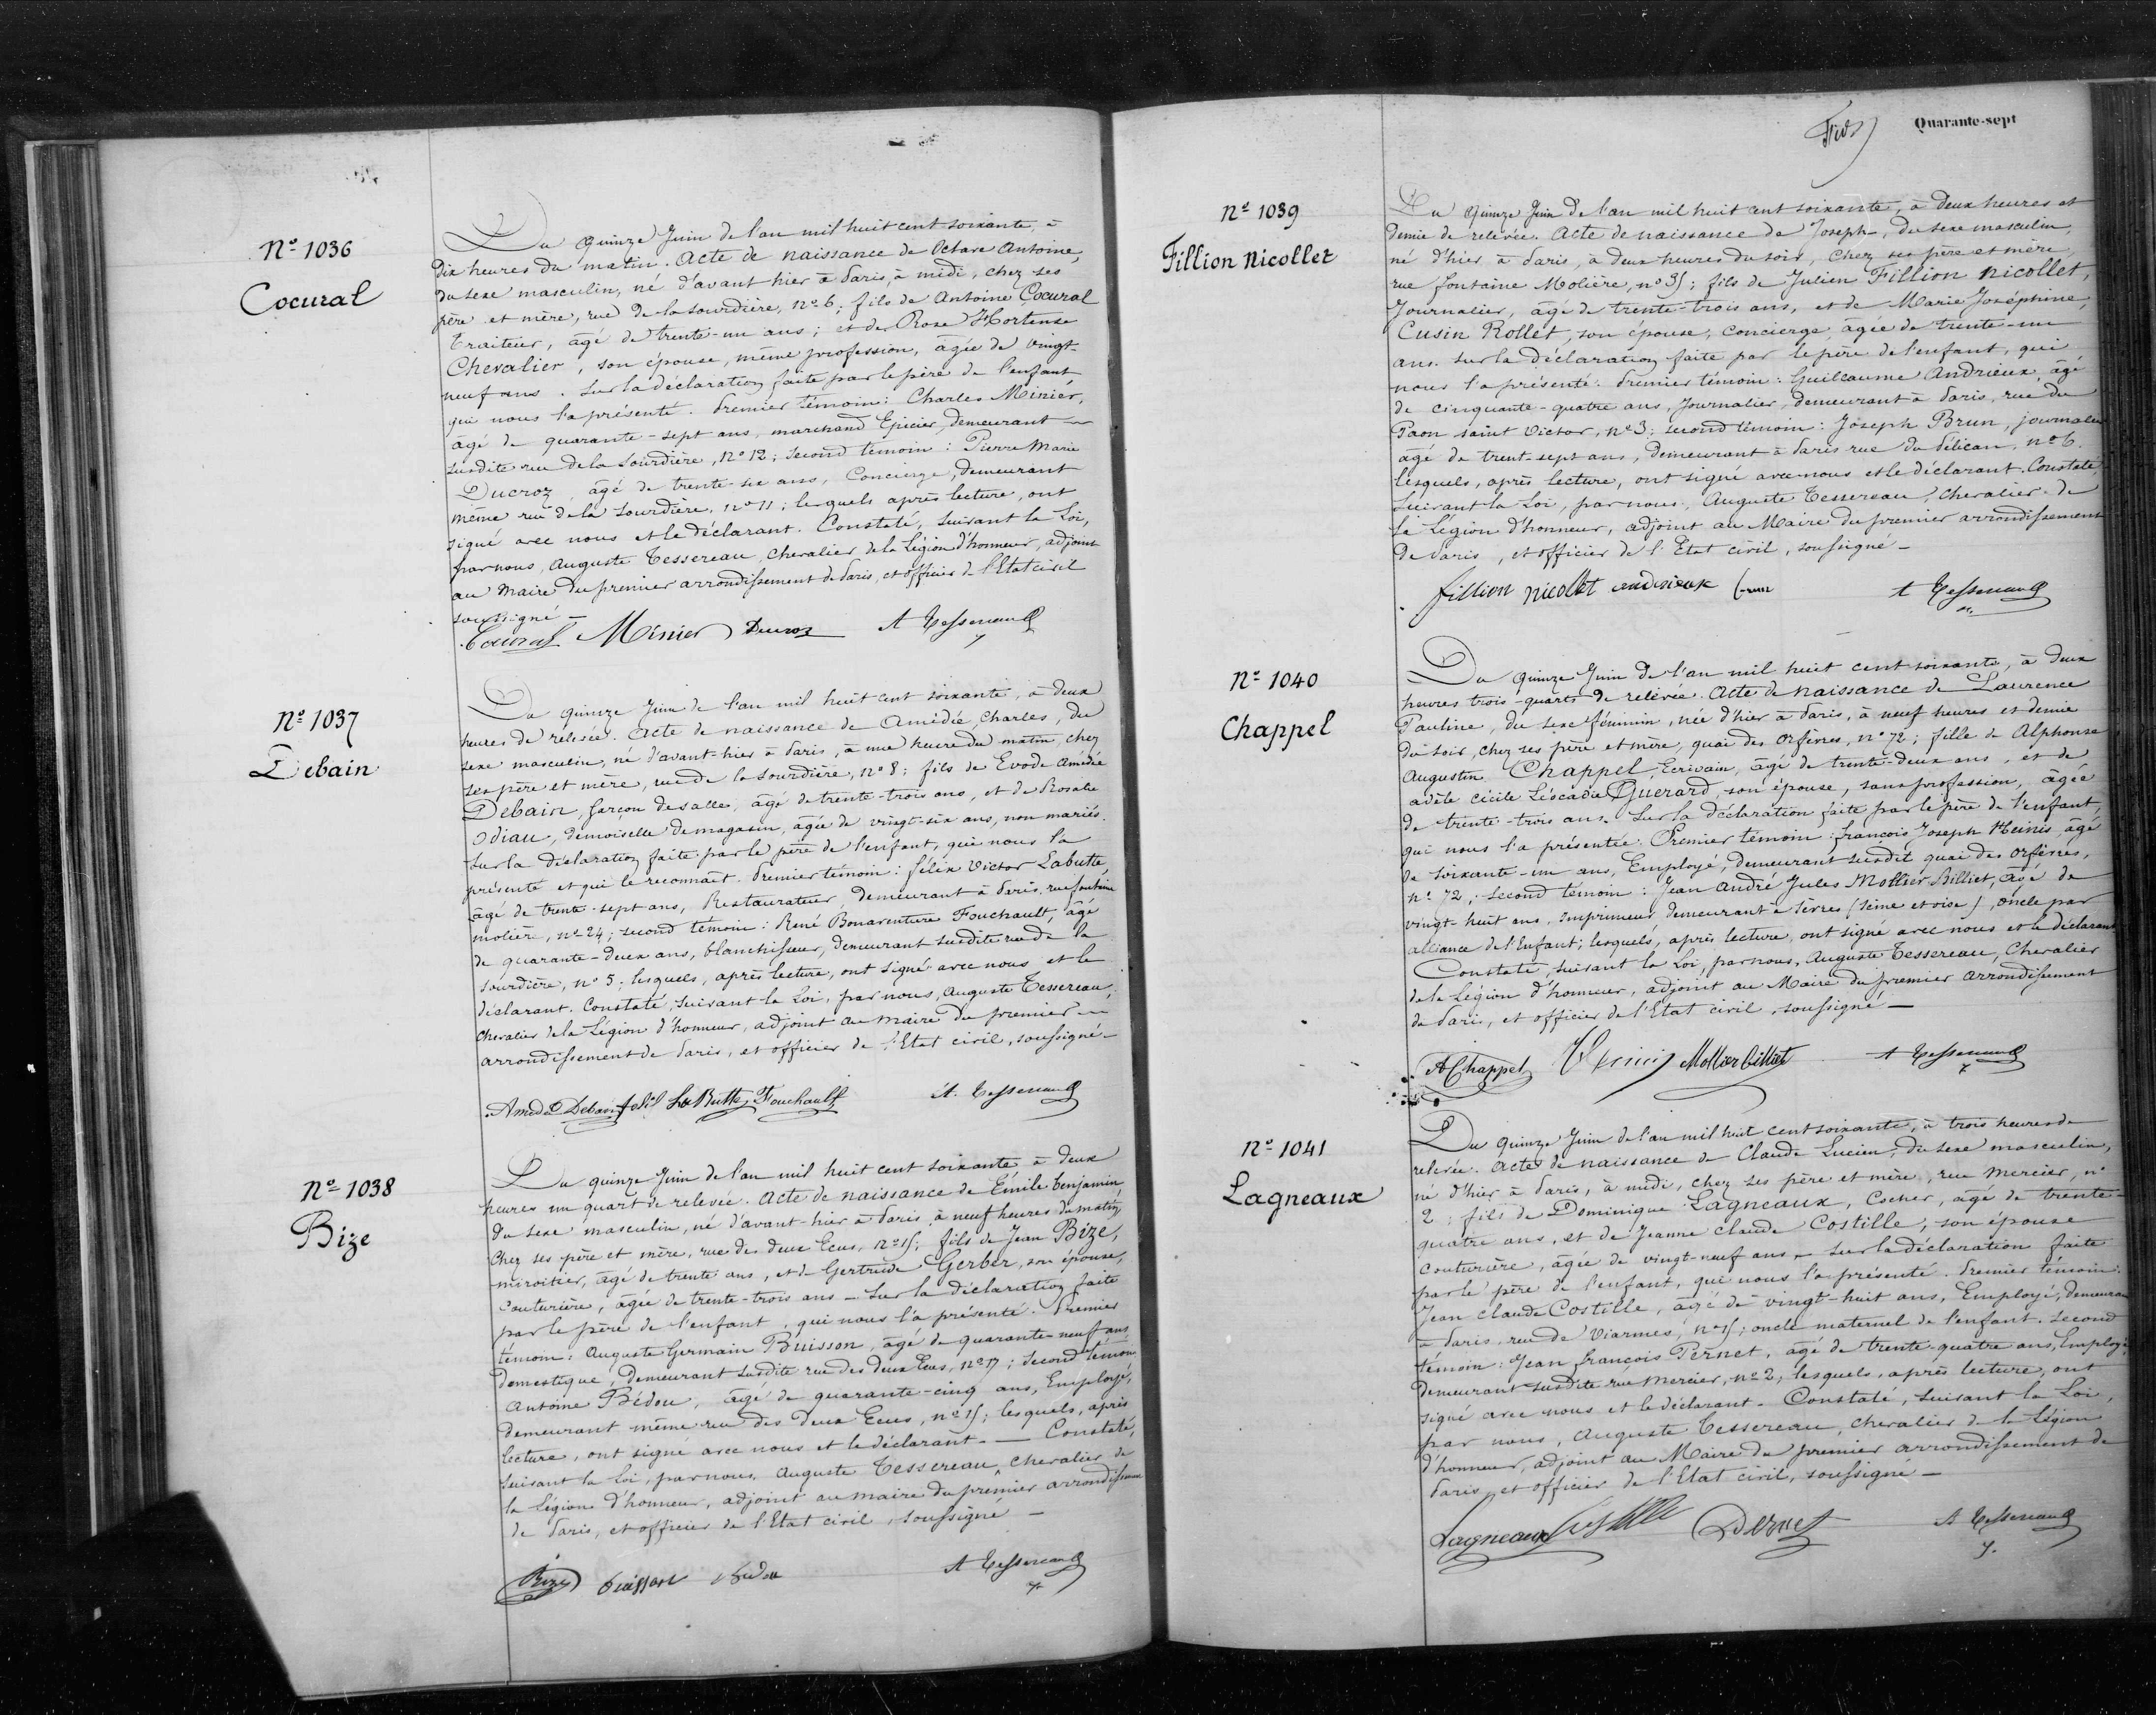 Nº 1036
Cocural
Du quinze Juin de l'an mil huit cent soixante, à
dix heures du matin. Acte de naissance de Octave Antoine,
du sexe masculin, né d'avant hier à Paris, à midi, chez ses
père et mère, rue de la Sourdière, nº 6, fils de Antoine Cocural
traiteur, âgé de trente-un ans; et de Rose Hortense
Chevalier, son épouse, même profession, âgée de vingt-
neuf ans. Sur la déclaration faite par le père de l'enfant
qui nous l'a présenté. Premier témoin: Charles Minier,
âgé de quarante-sept ans, marchand Epicier, demeurant
susdite rue de la Sourdière, nº 12; second témoin: Pierre Marie
Ducroz, âgé de trente-six ans, Concierge, demeurant
même rue de la Sourdière, nº 11; lesquels après lecture, ont
signé avec nous et le déclarant. Constaté, suivant la Loi,
par nous, Auguste Tessereau, chevalier de la Légion d'honneur, adjoint
au Maire du premier arrondissement de Paris, et officier de l'Etat civil
soussigné —
Cocural Minier Ducroz A Tessereau
Nº 1037
Debain
Du quinze Juin de l'an mil huit cent soixante, à deux
heures de relevée. Acte de naissance de Amédée, Charles, du
sexe masculin, né d'avant-hier à Paris, à une heure du matin, chez
ses père et mère, rue de la Sourdière, nº 8; fils de Evode Amédée
Debain, garçon de salle, âgé de trente-trois ans, et de Rosalie
Odiau, demoiselle de magasin, âgée de vingt-six ans, non mariés.
Sur la déclaration faite par le père de l'enfant, qui nous l'a
présenté et qui le reconnaît. Premier témoin: félix Victor Labutte,
âgé de trente-sept ans, Restaurateur, demeurant à Paris, rue fontaine
molière, nº 24; second témoin: René Bonaventure Fouchault, âgé
de quarante-deux ans, blanchisseur, demeurant susdite rue de la
sourdière, nº 5; lesquels, après lecture, ont signé avec nous et le
déclarant. Constaté, suivant la Loi, par nous, Auguste Tessereau,
Chevalier de la Légion d'honneur, adjoint au maire du premier
arrondissement de Paris, et officier de l'Etat civil, soussigné —
Amédée Debain félix LaButte Fouchault A. Tessereau
Nº 1038
Bize
Du quinze Juin de l'an mil huit cent soixante, à deux
heures un quart de relevée. Acte de naissance de Émile Benjamin
du sexe masculin, né d'avant-hier à Paris à neuf heures du matin,
chez ses père et mère, rue des deux Ecus, nº 15; fils de Jean Bize,
miroitier, âgé de trente ans, et de Gertrude Gerber, son épouse,
Couturière, âgée de trente-trois ans — Sur la déclaration faite
par le père de l'enfant, qui nous l'a présenté. Premier
témoin: Auguste Germain Buisson, âgé de quarante-neuf ans
domestique, demeurant susdite rue des deux Ecus, nº 17; Second témoin
Antoine Bédou, âgé de quarante-cinq ans, Employé,
demeurant même rue des deux Ecus, nº 15; lesquels, après
lecture, ont signé avec nous et le déclarant. — Constaté,
suivant la Loi, par nous, Auguste Tessereau, chevalier de
la Légion d'honneur, adjoint au maire du premier arrondissement
de Paris, et officier de l'Etat civil, soussigné —
Bize Buisson Bedou A Tessereau
Quarante-sept
Nº 1039
Fillion Nicollet
Du quinze Juin de l'an mil huit cent soixante, à deux heures et
demie de relevée. Acte de naissance de Joseph, du sexe masculin,
né d'hier à Paris, à deux heures du soir, chez ses père et mère
rue fontaine Molière, nº 35; fils de Julien Fillion Nicollet,
Journalier, âgé de trente-trois ans, et de Marie Joséphine,
Cusin Rollet, son épouse, concierge, âgée de trente-un
ans. Sur la déclaration faite par le père de l'enfant, qui
nous l'a présenté. Premier témoin: Guillaume Andrieux, âgé
de cinquante-quatre ans, Journalier, demeurant à Paris, rue du
Paon saint Victor, nº 3; second témoin: Joseph Brun, journalier
âgé de trent-sept ans, demeurant à Paris rue du Pélican, nº 6.
lesquels, après lecture, ont signé avec nous et le déclarant. Constaté,
suivant la Loi, par nous, Auguste Tessereau, Chevalier de
la Légion d'honneur, adjoint au Maire du premier arrondissement
de Paris, et officier de l'Etat civil, soussigné —
fillion nicollet andrieux brun A Tessereau
Nº 1040
Chappel
Du quinze Juin de l'an mil huit cent soixante, à deux
heures trois-quarts de relevée. Acte de naissance de Laurence
Pauline, du sexe féminin, née d'hier à Paris, à neuf heures et demie
du soir, chez ses père et mère, quai des Orfèvres, nº 72; fille de Alphonse
Augustin Chappel, Ecrivain, âgé de trente-deux ans, et de
adèle cécile Léocadie Guerard, son épouse, sans profession, âgée
de trente-trois ans. Sur la déclaration faite par le père de l'enfant,
qui nous l'a présentée. Premier témoin: françois Joseph Heinis, âgé
de soixante-un ans, Employé, demeurant susdit quai des orfèvres,
nº 72; second témoin: Jean André Jules Mollier Billiet, âgé de
vingt-huit ans, Imprimeur demeurant à Sèvres (Seine et oise), oncle par
alliance de l'Enfant; lesquels, après lecture, ont signé avec nous et le déclarant
Constaté, suivant la Loi, par nous, Auguste Tessereau, Chevalier
de la Légion d'honneur, adjoint au Maire du premier arrondissement
de Paris, et officier de l'Etat civil, soussigné —
A Chappel Heinis Mollier Billiet A Tessereau
Nº 1041
Lagneaux
Du quinze Juin de l'an mil huit cent soixante, à trois heures de
relevée. Acte de naissance de Claude Lucien, du sexe masculin,
né d'hier à Paris, à midi, chez ses père et mère, rue Mercier, nº
2; fils de Dominique Lagneaux, Cocher, âgé de trente-
quatre ans, et de Jeanne Claude Costille, son épouse
couturière, âgée de vingt-neuf ans — Sur la déclaration faite
par le père de l'enfant, qui nous l'a présenté. Premier témoin:
Jean Claude Costille, âgé de vingt-huit ans, Employé, demeurant
à Paris, rue de Viarmes, nº 15; oncle maternel de l'enfant. Second
témoin: Jean françois Pernet, âgé de trente-quatre ans, Employé,
demeurant susdite rue Mercier, nº 2, lesquels, après lecture, ont
signé avec nous et le déclarant. Constaté, suivant la Loi,
par nous, Auguste Tessereau, chevalier de la Légion
d'honneur, adjoint au Maire du premier arrondissement de
Paris, et officier de l'Etat civil, soussigné —
Lagneaux Costille Pernet A Tessereau